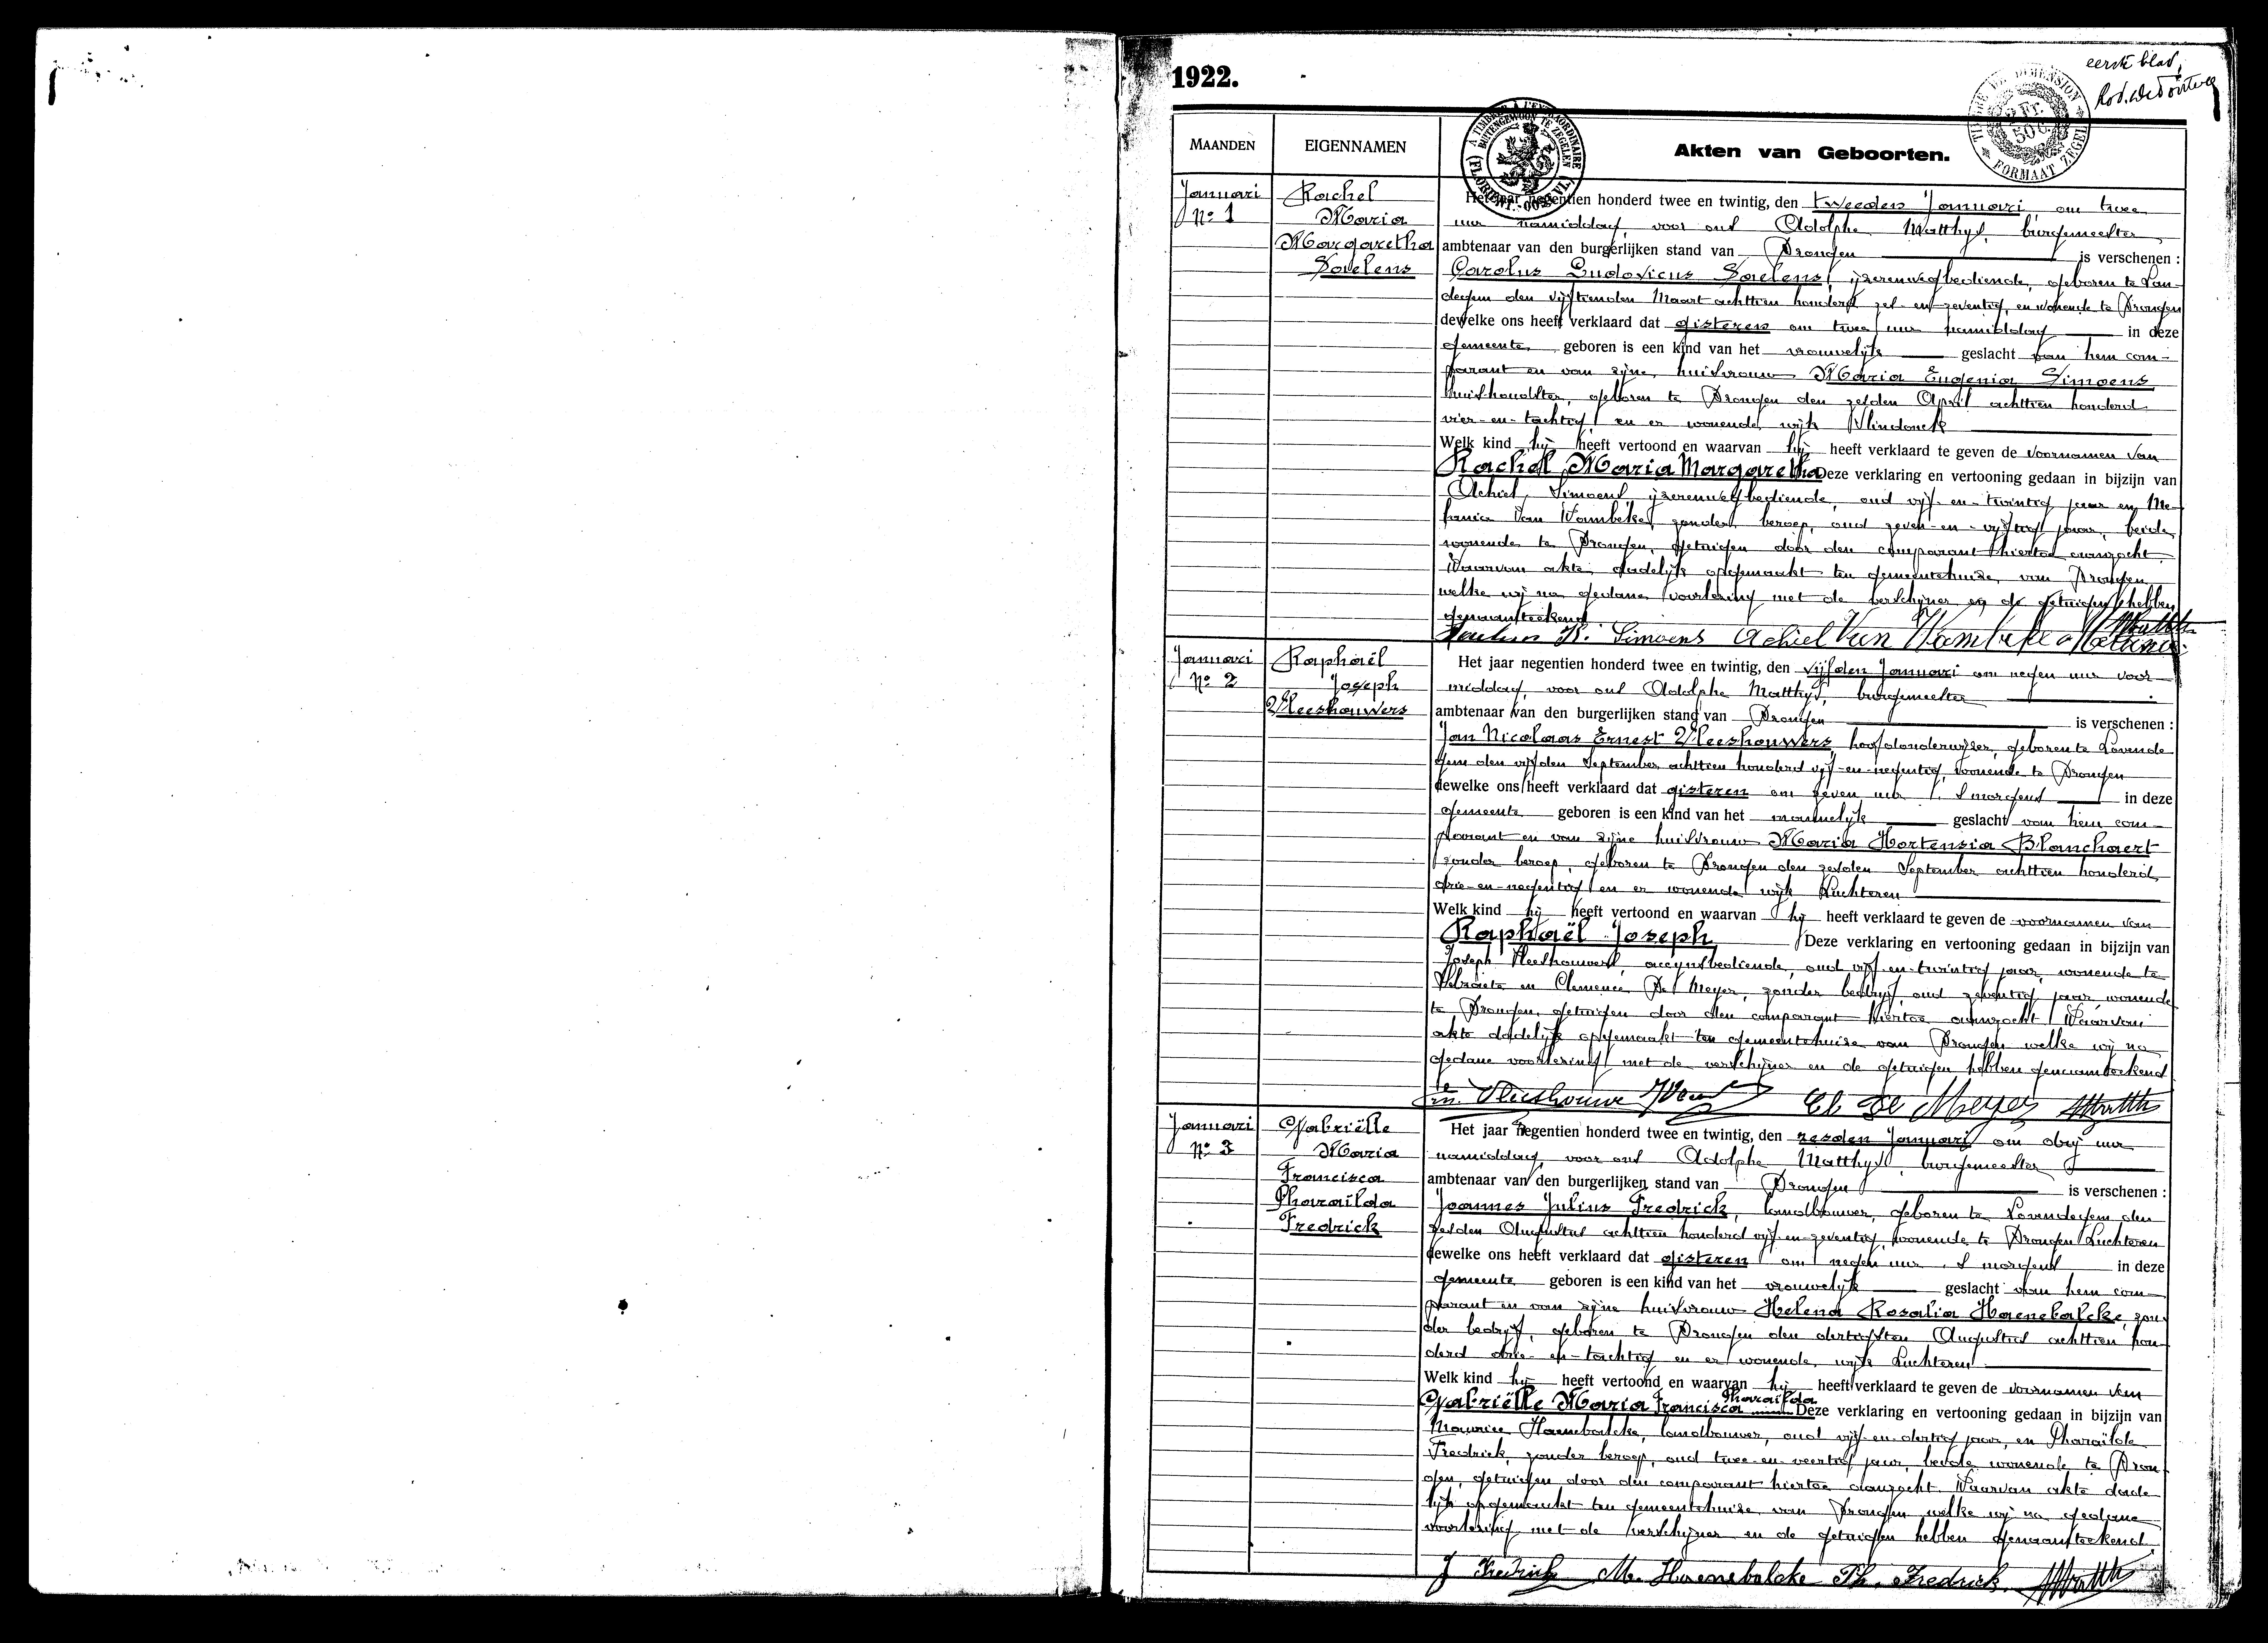 1922.
eerste blad,
TIMBRE DE DIMENSION
2 Fr. 50 C.
FORMAAT ZEGEL
A TIMBRER À L'EXTRAORDINAIRE
BUITENGEWOON TE ZEGELEN
MAANDEN
EIGENNAMEN
Akten van Geboorten.
Januari
No 1
Rachel
Maria
Margaretha
Daelens
Het jaar negentien honderd twee en twintig, den tweeden Januari, om twee
uur namiddag, voor ons Adolphe Matthys, burgemeester
ambtenaar van den burgerlijken stand van Drongen is verschenen :
Carolus Ludovicus Daelens, ijzerenwegbediende, geboren te Lan-
degem den vijftienden Maart achttien honderd zes-en-zeventig, en wonende te Drongen
dewelke ons heeft verklaard dat gisteren om twee uur namiddag in deze
gemeente geboren is een kind van het vrouwelijk geslacht van hem com-
parant en van zijne huisvrouw Maria Eugenia Simoens
huishoudster, geboren te Drongen den zesden April achttien honderd
vier-en-tachtig en er wonende, wijk Vlindonck
Welk kind hij heeft vertoond en waarvan hij heeft verklaard te geven de voornamen van
Rachel Maria Margaretha Deze verklaring en vertooning gedaan in bijzijn van
Achiel Simoens, ijzerenwegbediende, oud vijf-en-twintig jaar en Me-
lanie Van Wambeke, zonder beroep, oud zeven-en-vijftig jaar, beide
wonende te Drongen, getuigen door den comparant hiertoe aanzocht.
Waarvan akte, dadelijk opgemaakt ten gemeentehuize van Drongen,
welke wij na gedane voorlezing met de verschijner en de getuigen hebben
genaamteekend
Daelens K. Simoens Achiel Van Wambeke Melanie
Januari
No 2
Raphaël
Joseph
Vleeshouwers
Het jaar negentien honderd twee en twintig, den vijfden Januari om negen uur voor-
middag, voor ons Adolphe Matthys, burgemeester
ambtenaar van den burgerlijken stand van Drongen is verschenen :
Jan Nicolaas Ernest Vleeshouwers, hoofdonderwijzer, geboren te Lovende-
gem den vijfden September achttien honderd vijf-en-negentig, wonende te Drongen
dewelke ons heeft verklaard dat gisteren om zeven uur 's morgens in deze
gemeente geboren is een kind van het mannelijk geslacht van hem com-
parant en van zijne huisvrouw Maria Hortensia Blanchaert
zonder beroep, geboren te Drongen den zesden September achttien honderd
drie-en-negentig en er wonende wijk Luchteren
Welk kind hij heeft vertoond en waarvan hij heeft verklaard te geven de voornamen van
Raphaël Joseph Deze verklaring en vertooning gedaan in bijzijn van
Joseph Vleeshouwers, accynsbediende, oud vijf-en-twintig jaar, wonende te
Selzaete en Clemence De Meyer, zonder bedryf, oud zeventig jaar, wonende
te Drongen, getuigen door den comparant hiertoe aanzocht. Waarvan
akte dadelijk opgemaakt ten gemeentehuize van Drongen welke wij na
gedane voorlezing met de verschijner en de getuigen hebben genaamteekend
Vleeshouwe Cl. De Meyer Matth
Januari
No 3
Gabriëlle
Maria
Francisca
Pharaïlda
Fredrick
Het jaar negentien honderd twee en twintig, den zesden Januari om drij uur
namiddag, voor ons Adolphe Matthys, burgemeester
ambtenaar van den burgerlijken stand van Drongen is verschenen :
Joannes Julius Fredrick, landbouwer, geboren te Lovendegem den
zesden Augustus achttien honderd vijf-en-zeventig, wonende te Drongen Luchteren
dewelke ons heeft verklaard dat gisteren om negen uur 's morgens in deze
gemeente geboren is een kind van het vrouwelijk geslacht van hem com-
parant en van zijne huisvrouw Helena Rosalia Haenebalcke, zon-
der bedryf, geboren te Drongen den dertigsten Augustus achttien hon-
derd drie-en-tachtig en er wonende, wijk Luchteren
Welk kind hij heeft vertoond en waarvan hij heeft verklaard te geven de voornamen van
Gabriëlle Maria Francisca Pharaïlda Deze verklaring en vertooning gedaan in bijzijn van
Maurice Haenebalcke, landbouwer, oud vijf-en-dertig jaar, en Pharaïlde
Fredrick, zonder beroep, oud twee-en-veertig jaar, beide wonende te Dron-
gen, getuigen door den comparant hiertoe aanzocht. Waarvan akte dade-
lijk opgemaakt ten gemeentehuize van Drongen welke wij na gedane
voorlezing met de verschijner en de getuigen hebben genaamteekend
J Fredrick M. Haenebalcke Ph. Fredrick. Matth